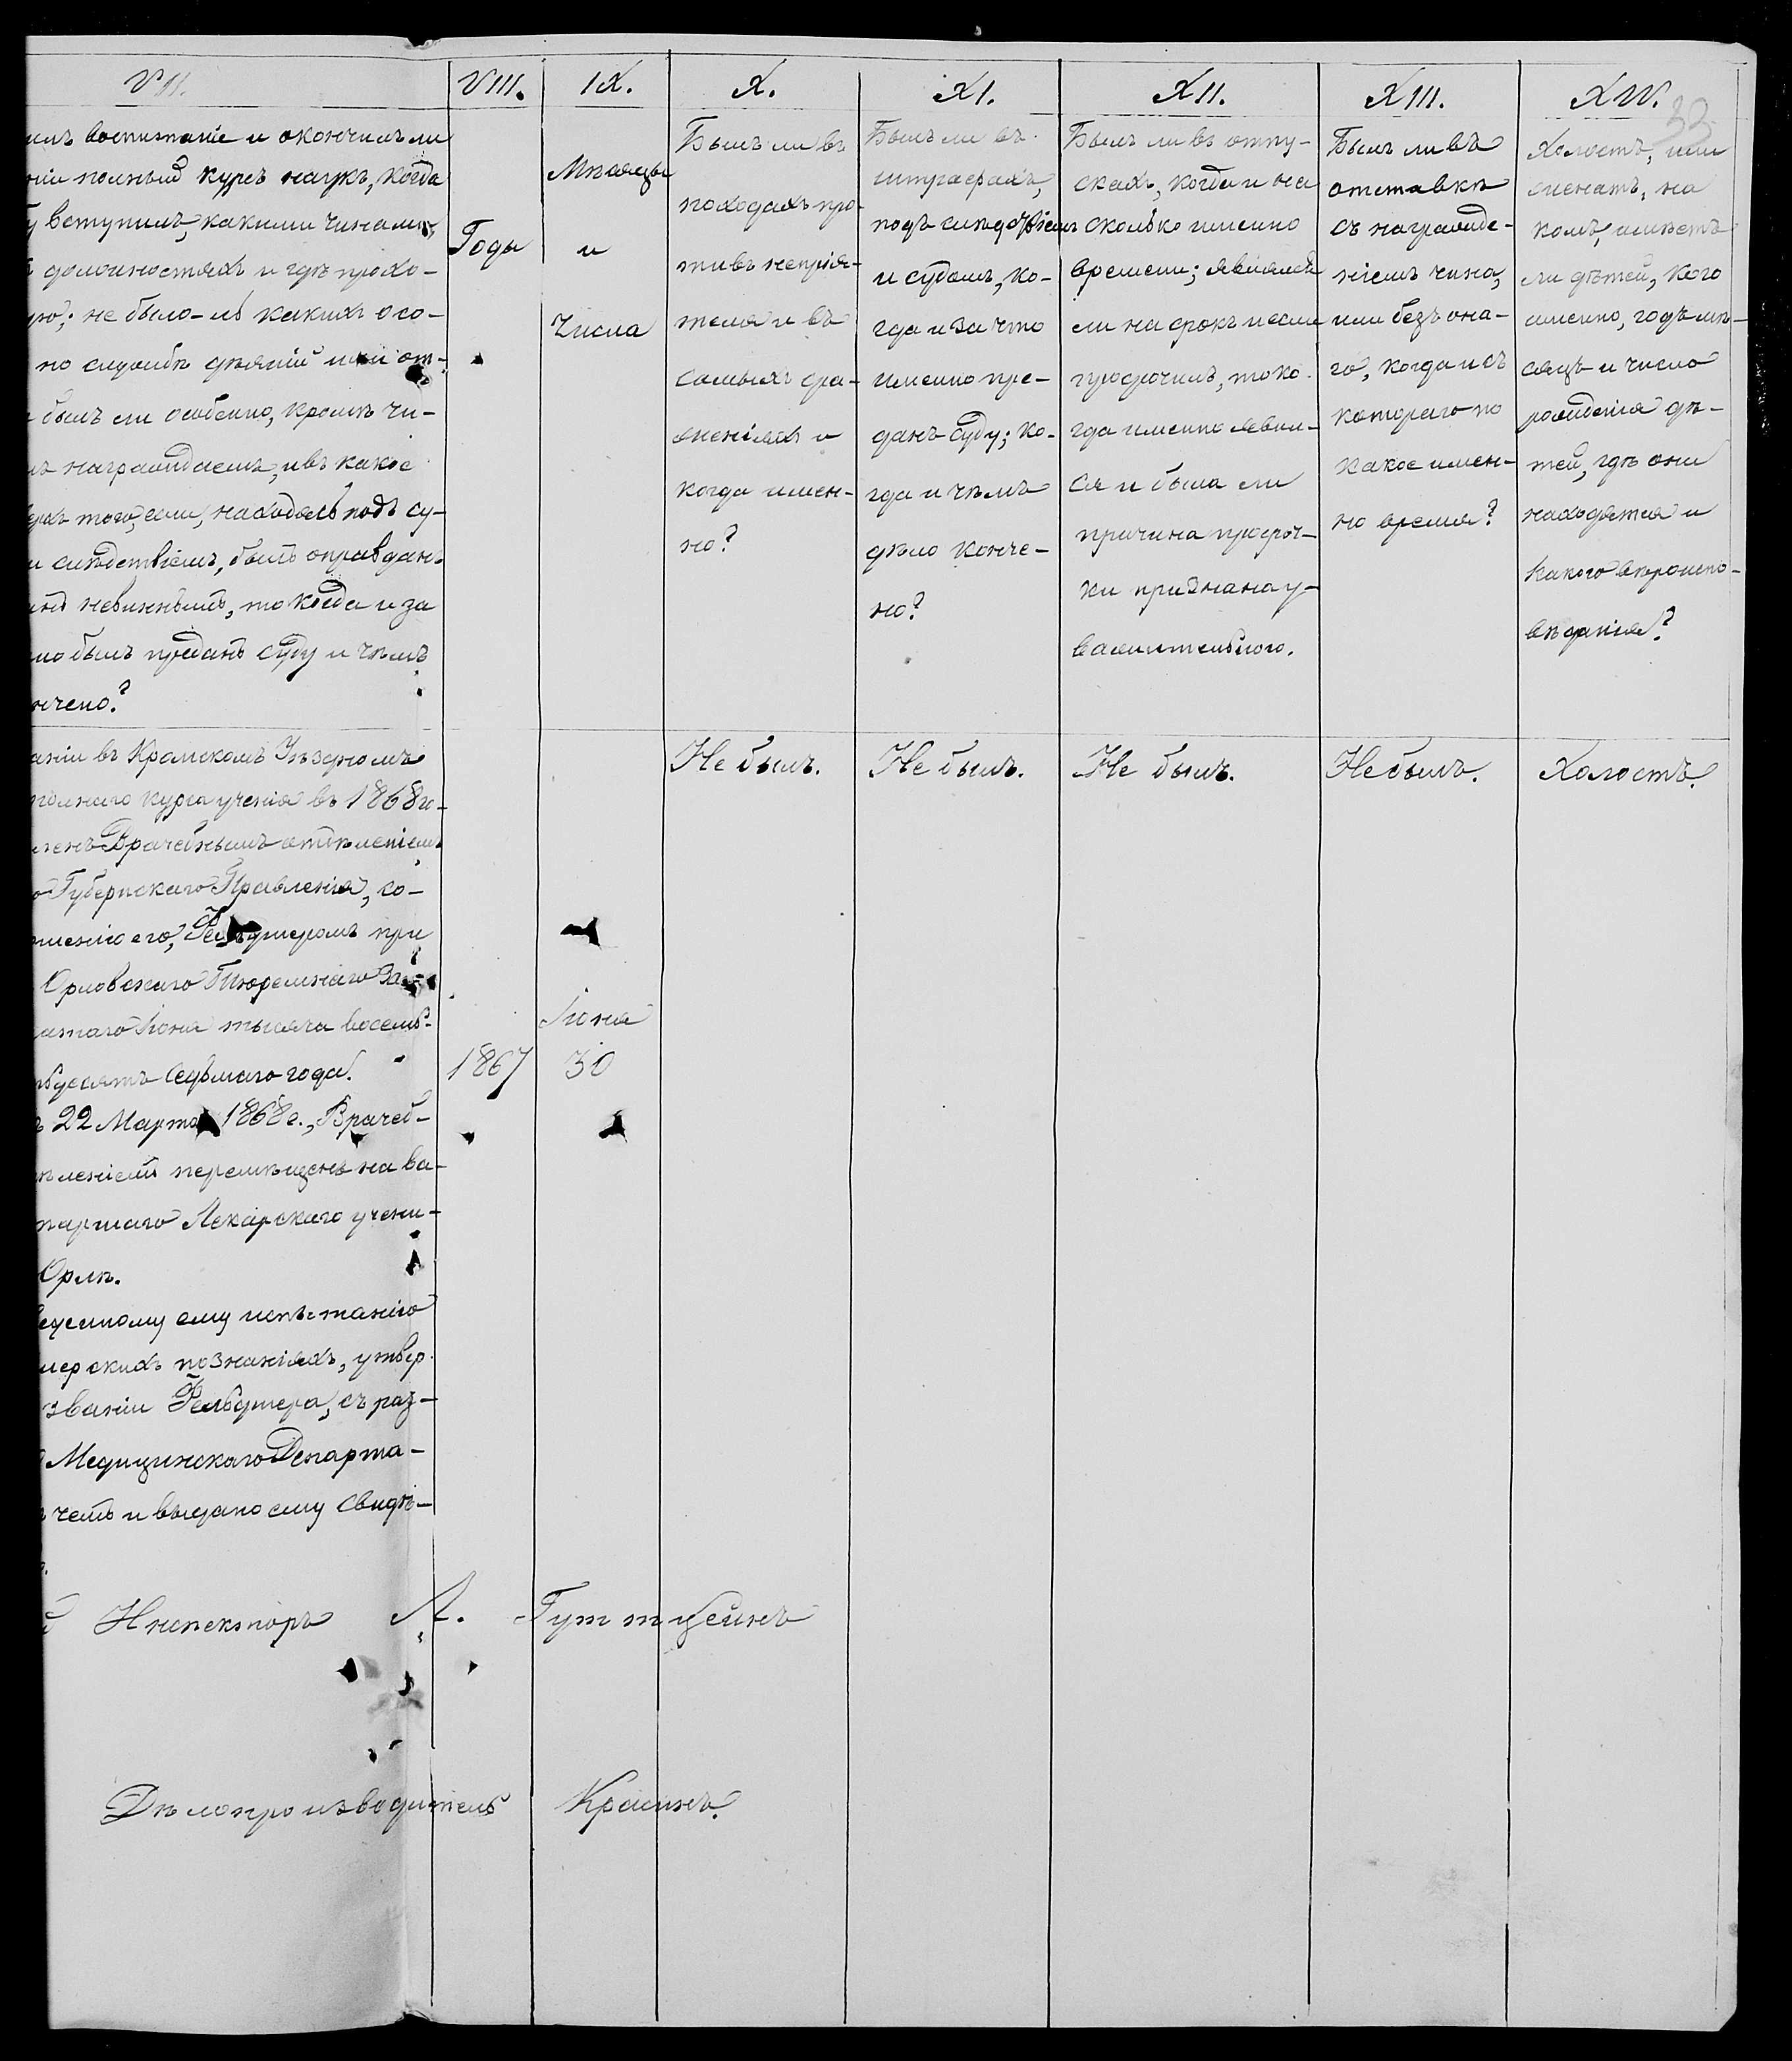 VII.
илъ воспитаніе и окончилъ ли
ніи полный курсъ наукъ, когда
у вступилъ, какими чинами,
должностяхъ и гдѣ прохо-
ую; не было-ль какихъ осо-
по службѣ дѣяній или от-
былъ ли особенно, кромѣ чи-
награждаемъ, и въ какое
ерхъ того, если, находясь подъ су-
и слѣдствіемъ, былъ оправданъ
анъ невиннымъ, то когда и за
но былъ преданъ суду и чѣмъ
нчено?
VIII.
Годы
IX.
Мѣсяцы
и
Числа
X.
Былъ ли въ
походахъ про-
тивъ непрія-
теля и въ
самыхъ сра-
женіяхъ и
когда имен-
но?
XI.
Былъ ли въ
штрафахъ,
подъ слѣдствіемъ
и судомъ, ко-
гда и за что
именно пре-
данъ суду; ко-
гда и чѣмъ
дѣло конче-
но?
XII.
Былъ ли въ отпу-
скахъ, когда и на
сколько именно
времени; являлся
ли на срокъ и если
просрочилъ, то ко-
гда именно явил-
ся и была ли
причина просроч-
ки признана у-
важительною.
XIII.
Былъ ли въ
отставкѣ
съ награжде-
ніемъ чина,
или безъ она-
го, когда и съ
котораго по
какое имен-
но время?
XIV.
33
Холостъ, или
женатъ, на
комъ, имѣетъ
ли дѣтей, кого
именно, годъ мѣ-
сяцъ и число
рожденія дѣ-
тей, гдѣ они
находятся и
какого вѣроиспо-
вѣданія?
аніи въ Кромскомъ Уѣздномъ
полнаго курса ученія въ 1868 го-
ленъ Врачебнымъ отдѣленіемъ
о Губернскаго Правленія, со-
шенію его, Фельдшеромъ при
Орловскаго Тюремнаго За-
цатаго Іюня тысяча восемь-
ьдесятъ седьмаго года.
22 Марта 1868 г., Врачеб-
ѣленіемъ перемѣщенъ на ва-
таршаго Лекарскаго учени-
Орлѣ.
веденному ему испытанію
шерскихъ познаніяхъ, утвер-
званіи Фельдшера, съ раз-
Медицинскаго Департа-
чемъ и выдано ему свидѣ-
1867
Іюня
30
Не былъ.
Не былъ.
Не былъ.
Не былъ.
Холостъ.
Инспекторъ А. Гутцейтъ
Дѣлопроизводитель Красинъ.